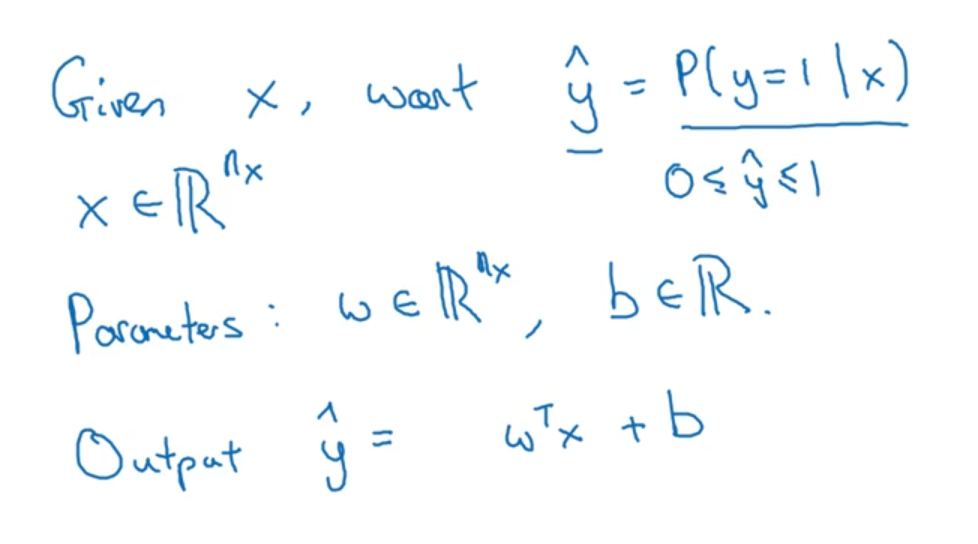 Given x, want ŷ = P(y=1 | x)
x ∈ ℝⁿˣ 0 ≤ ŷ ≤ 1
Parameters: w ∈ ℝⁿˣ, b ∈ ℝ.
Output ŷ = wᵀx + b